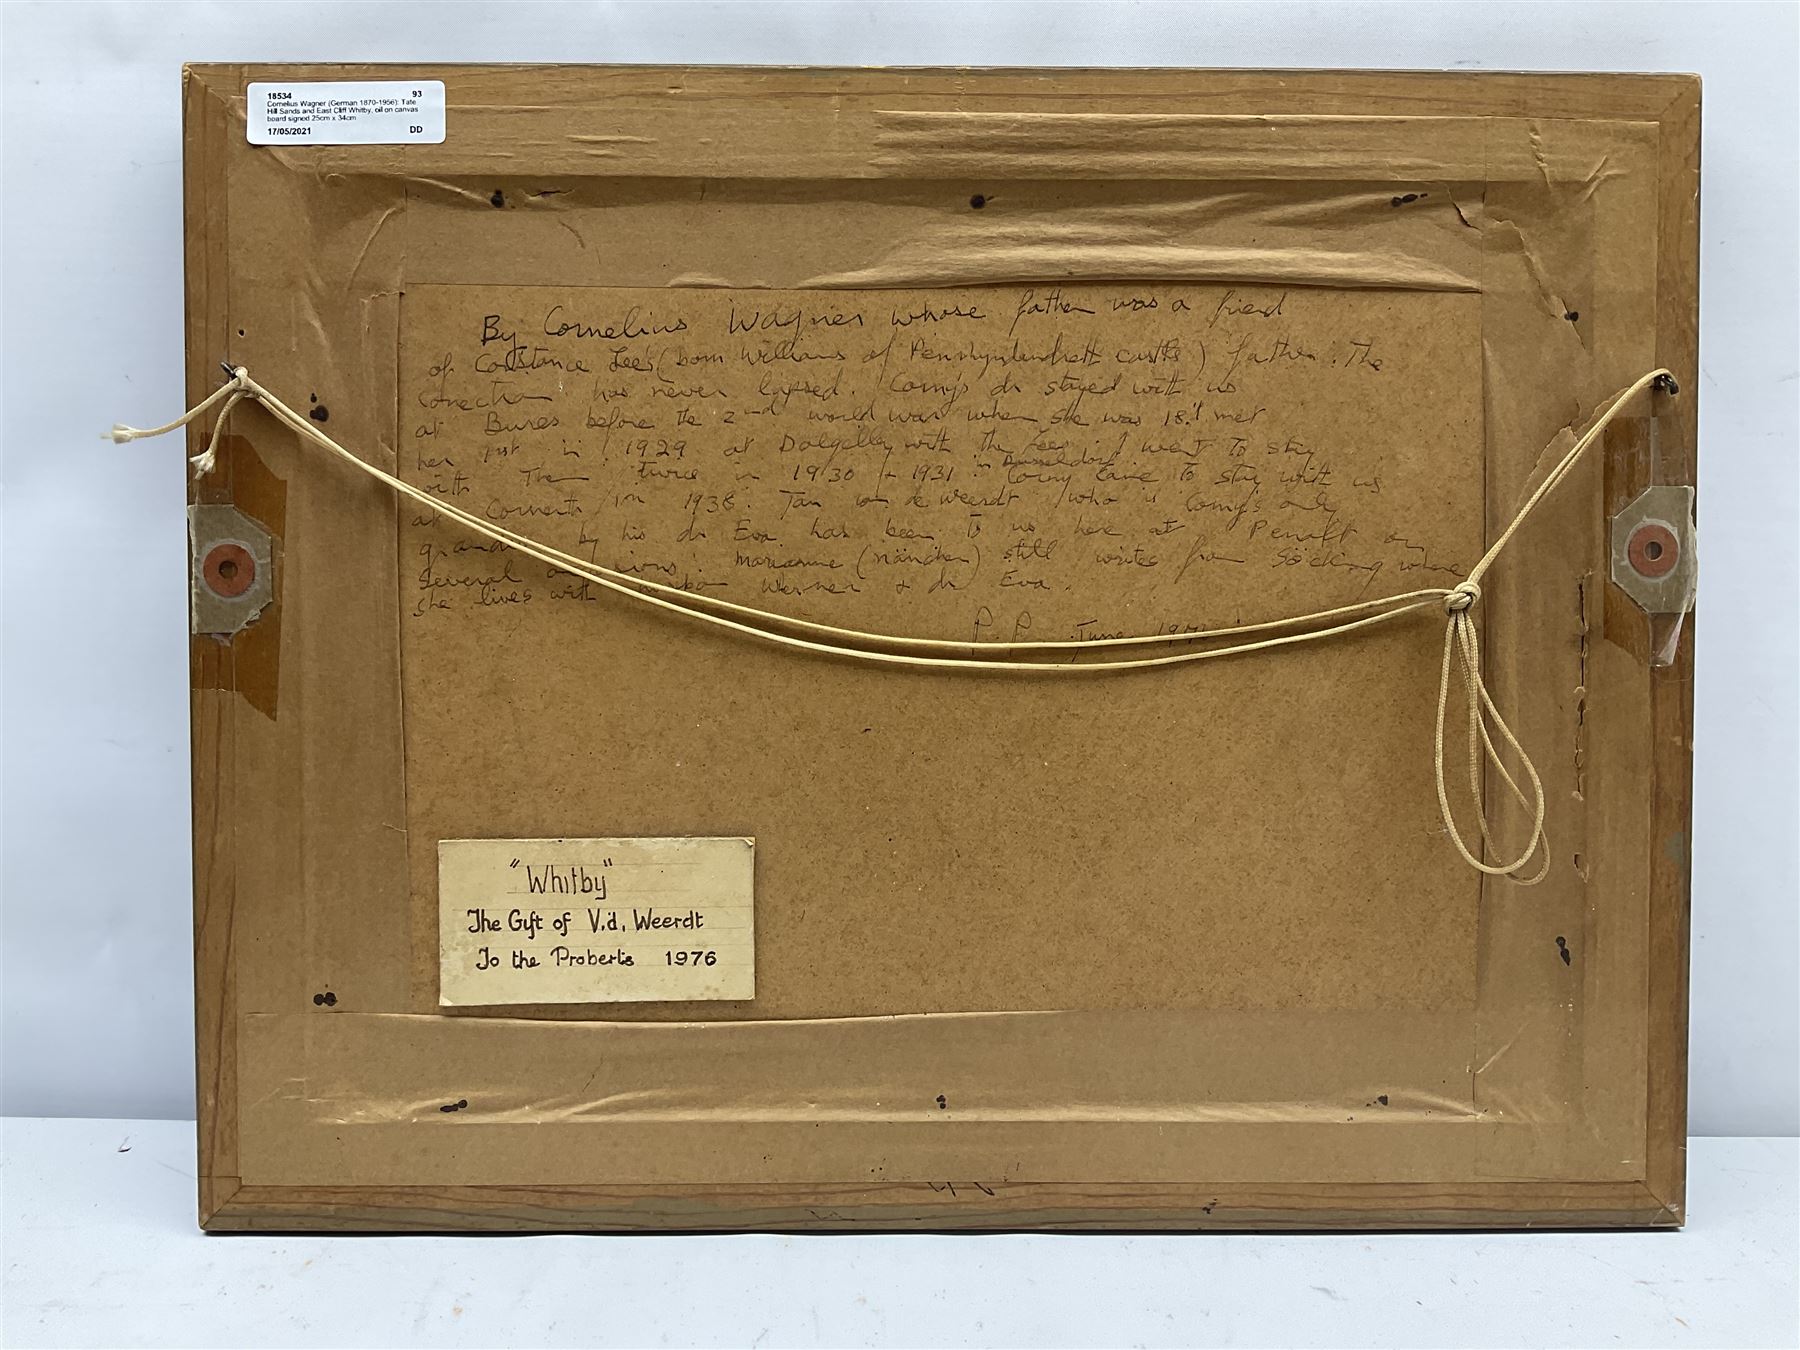 18534 93
Cornelius Wagner (German 1870-1956): Tate
Hill Sands and East Cliff Whitby, oil on canvas
board signed 25cm x 34cm
17/05/2021 DD
By Cornelius Wagner whose father was a fried
of Constance Lee's (born Williams of castle) father. The
conection has never lapsed. Corny's dr stayed with us
at Bures before the 2nd world war when she was 18. I met
her 1st in 1929 at Dolgelley with the Lees. I went to stay
with them twice in 1930 + 1931 in Dusseldorf. Corny came to stay with us
at in 1938. Jan v de Weerdt who is Corny's only
by his dr Eva has been to us here at on
several. Marianne (Nänchen) still writes from Söcking where
she lives with Werner & dr Eva.
P.P. June
"Whitby"
The Gift of V.d. Weerdt
To the Proberts 1976